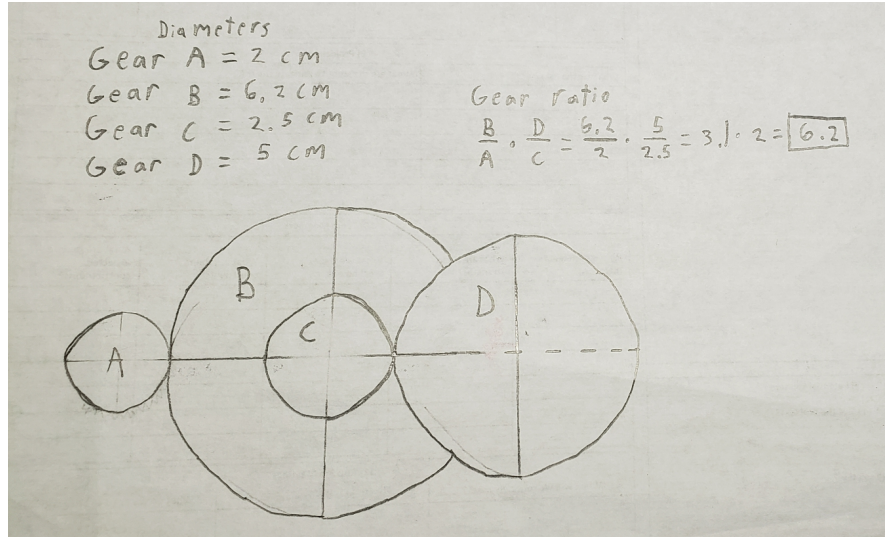 Diameters
Gear A = 2 cm
Gear B = 6,2 cm
Gear C = 2.5 cm
Gear D = 5 cm
Gear ratio
B/A · D/C = 6.2/2 · 5/2.5 = 3.1 · 2 = 6.2
B
C
D
A